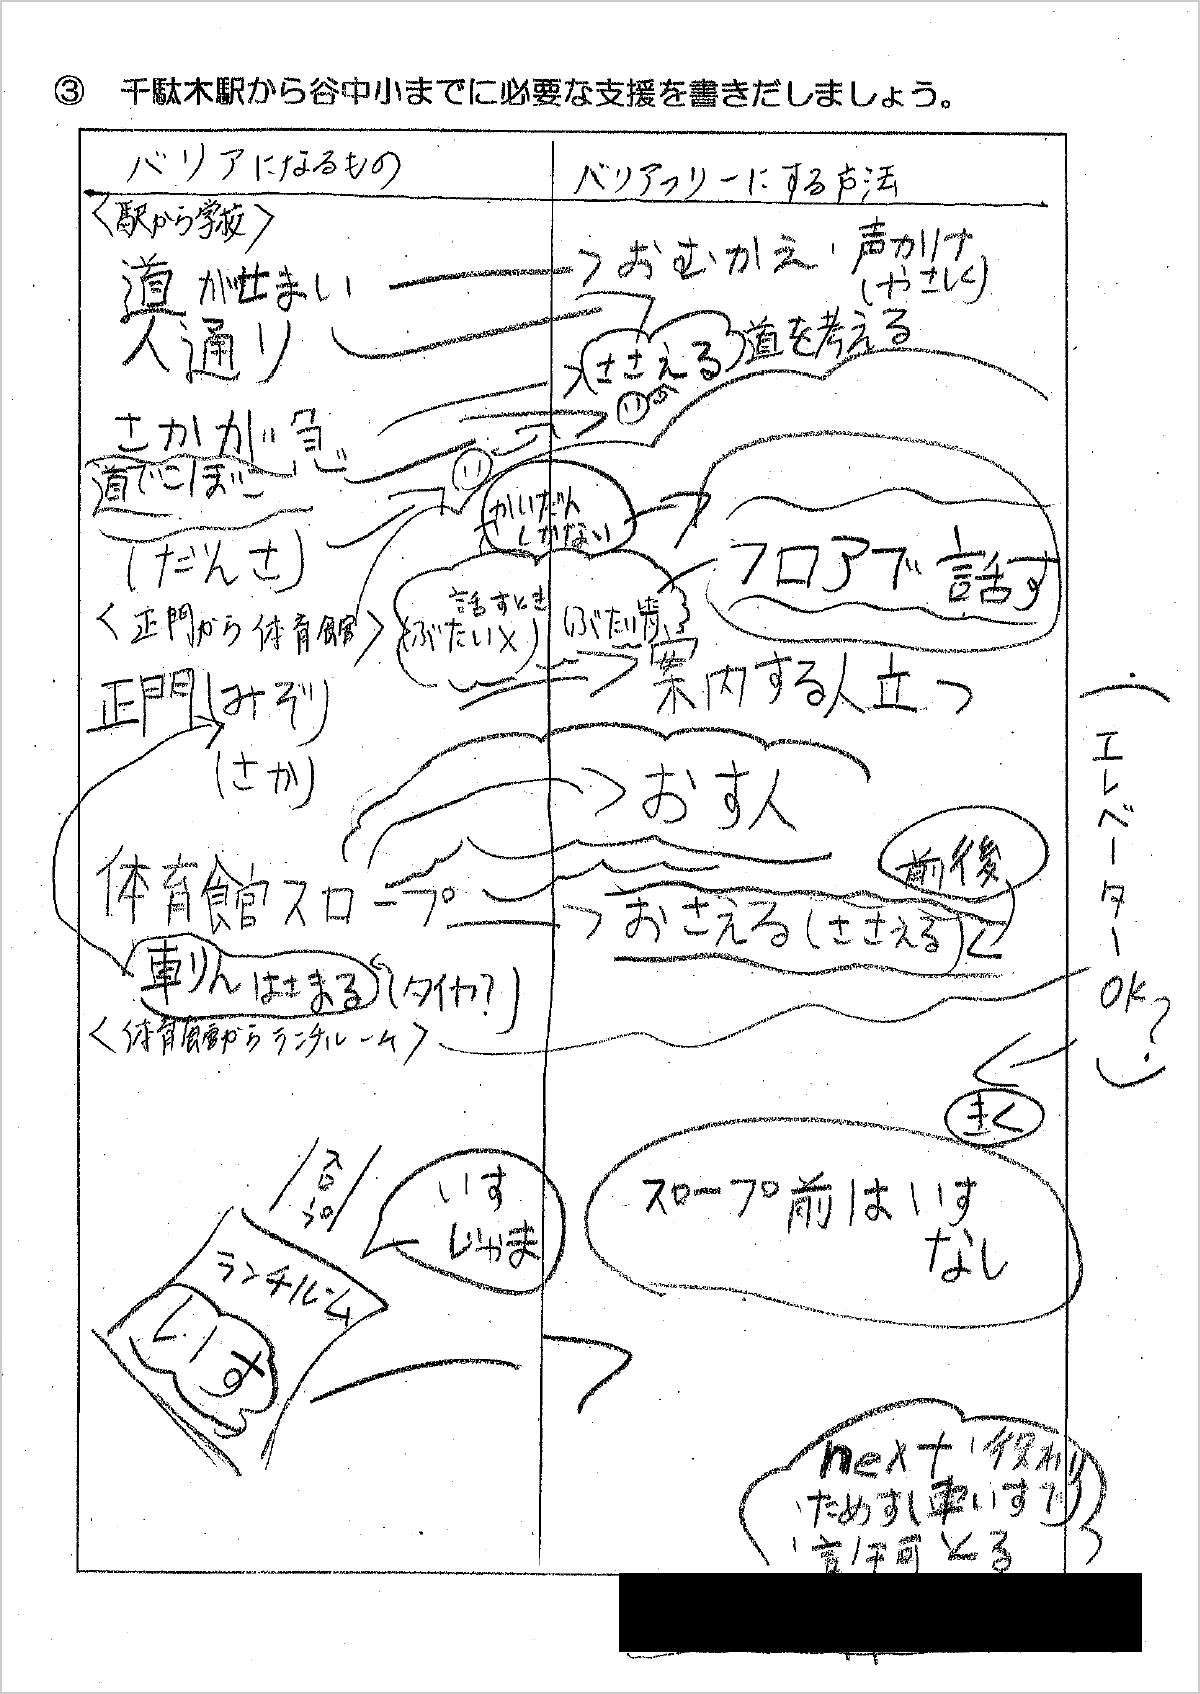 ③ 千駄木駅から谷中小までに必要な支援を書きだしましょう。
バリアになるもの
バリアフリーにする方法
〈駅から学校〉
道がせまい
おむかえ・声かけ
(やさしく)
人通り
ささえる
道を考える
さかが急
道でこぼこ
(だんさ)
かいだん
しかない
フロアで話す
〈正門から体育館〉
話すとき
(ぶたい×)
正門(みぞ)
案内する人立つ
(さか)
おす人
体育館スロープ
前後
おさえる(ささえる)
車りんはさまる(タイヤ?)
〈体育館からランチルーム〉
(エレベーターOK?)
きく
いす
じゃま
スロープ前はいす
なし
ランチルーム
いす
next
ためすし車いすで
とる